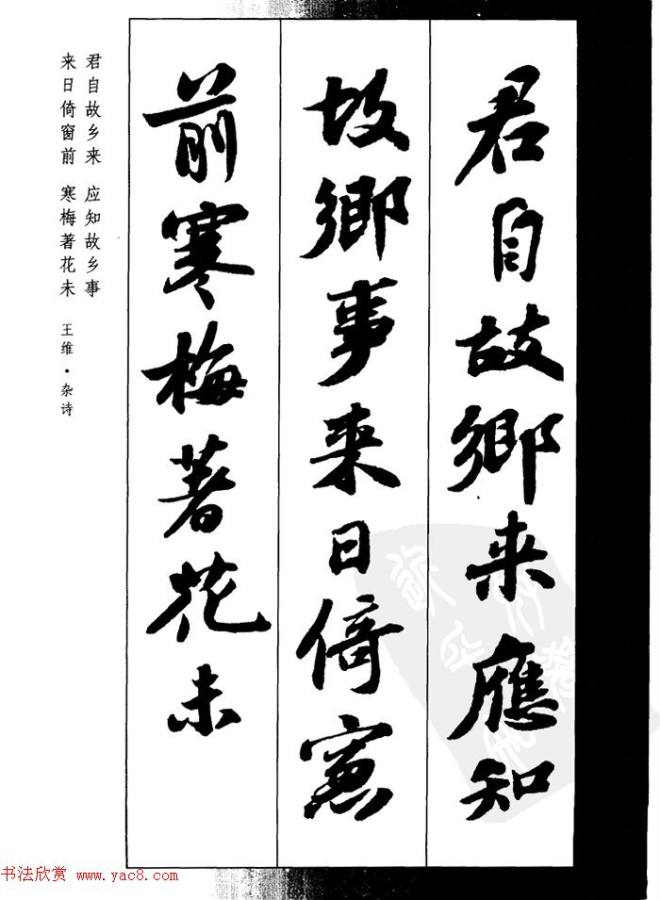 君自故鄉来應知
故鄉事来日倚窻
前寒梅著花未
君自故乡来 应知故乡事
来日倚窗前 寒梅著花未 王维·杂诗
书法欣赏 www.yac8.com